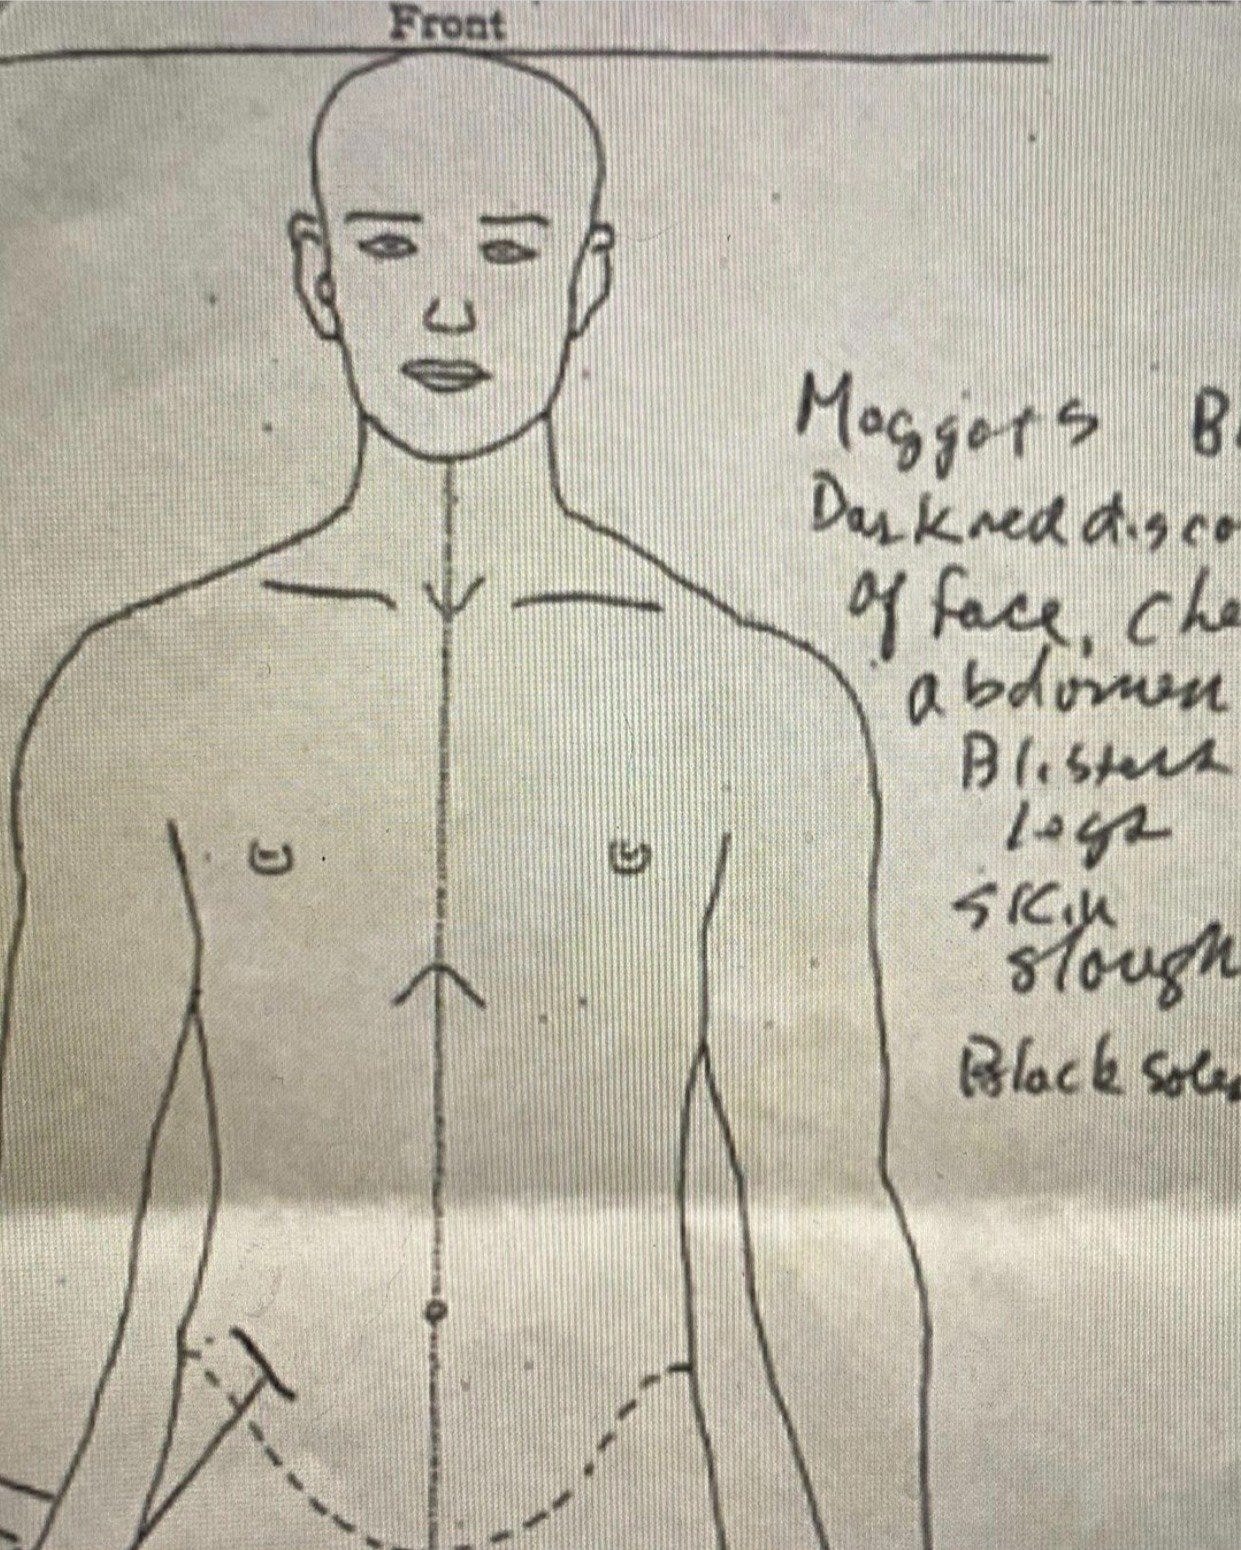 Front
Maggots B
Dark red disco
of face, che
abdomen
Blisters
legs
skin
slough
Black soles